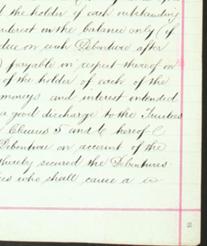 the holder of each outstanding
interest on the balance only (if
due on such Debenture after
) payable in respect thereof on
of the holder of each of the
moneys and interest intended
a good discharge to the Trustees
Clauses 5 and 6 hereof
Debenture on account of the
thereby secured the Debentures
who shall cause a